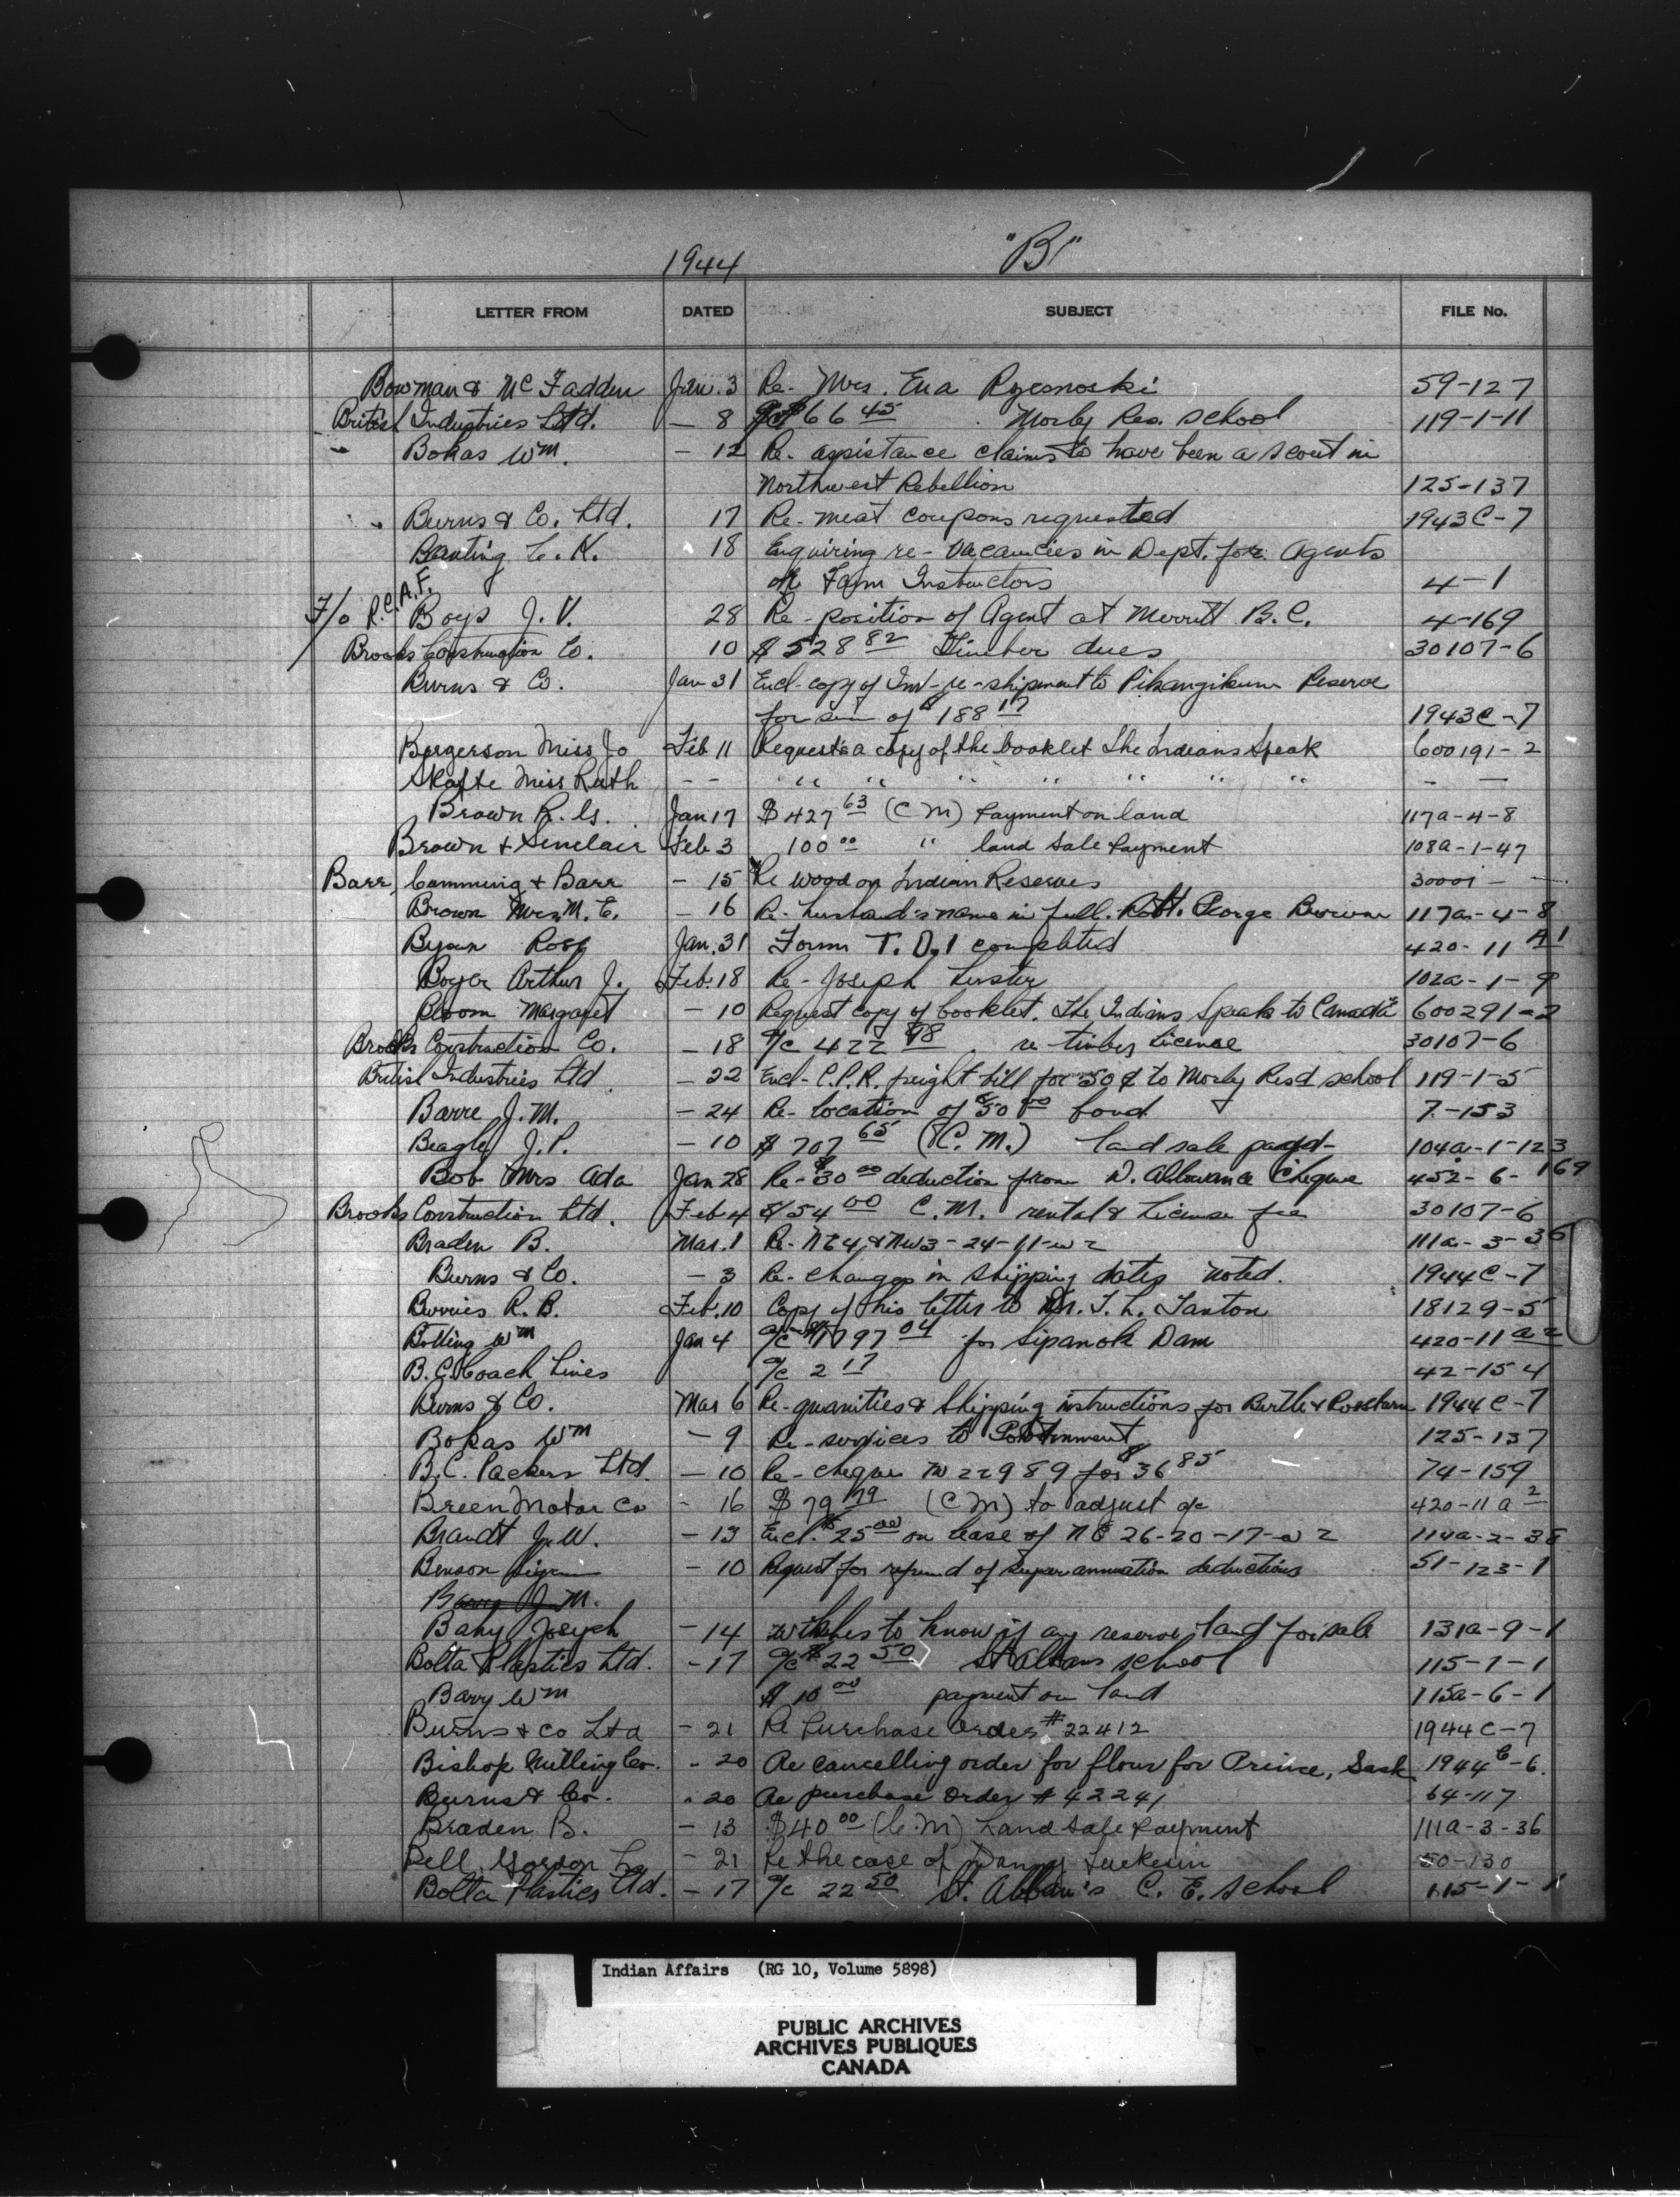 1944 "B"
LETTER FROM DATED SUBJECT FILE No.
Bowman & McFadden Jan. 3 Re- Mrs. Eva 59-127
British Industries Ltd. — 8 a/c $66 45 Morley Res. School 119-1-11
Bokas Wm. - 12 Re- assistance claims to have been a scout in
Northwest Rebellion 125-137
Burns & Co. Ltd. 17 Re- meat coupons requested 1943C-7
Banting C. K. 18 Enquiring re- vacancies in Dept. for Agents
or Farm Instructors 4-1
F/o R.C.A.F. Boys J. V. 28 Re- position of Agent at Merritt B.C. 4-169
Brooks Construction Co. 10 $528 82 Timber dues 30107-6
Burns & Co. Jan 31 Encl- copy of Inv- re- shipment to Pikangikum Reserve
for sum of $188 17 1943C-7
Bergerson Miss Jo Feb 11 Requests a copy of the booklet The Indians Speak 600191-2
Skafte Miss Ruth - - " " " " " " " - —
Brown R. G. Jan 17 $427 63 (C M) Payment on land 117a-4-8
Brown & Sinclair Feb 3 100 00 " land sale payment 108a-1-47
Barr, Cumming & Barr - 15 Re wood on Indian Reserves 30001 -
Brown Mrs. M. E. - 16 Re- husband's name in full. Robt. George Brown 117a-4-8
Ross Jan. 31 Form T.D.1 completed 420-11 A1
Boyer Arthur J. Feb. 18 Re- Joseph 102a-1-9
Bloom Margaret - 10 Request copy of booklet. The Indians Speak to Canada" 600291-2
Brooks Construction Co. - 18 a/c 422 98 re- timber licence 30107-6
British Industries Ltd - 22 Encl- C.P.R. freight bill for 50¢ to Morley Resd school 119-1-5
Barre J. M. - 24 Re- location of $50 00 bond 7-153
Beagle J. P. - 10 $707 65 (C. M.) land sale 104a-1-123
Bob Mrs Ada Jan 28 Re- $30 00 deduction from D. Allowance Cheque 452-6-169
Brooks Construction Ltd. Feb 4 $54 00 C.M. rental & License fee 30107-6
Braden B. Mar. 1 Re- NE4 & NW3-24-11-w2 111a-3-36
Burns & Co. - 3 Re- changes in shipping dates noted. 1944C-7
R. B. Feb. 10 Copy of his letter to Mr. T. L. Tanton 18129-5
Bolling Wm Jan 4 a/c $1797 04 for Sipanok Dam 420-11 a2
B.C. Coach Lines a/c 2 17 42-154
Burns & Co. Mar 6 Re- quanities & shipping instructions for Birtle & 1944C-7
Bokas Wm - 9 Re- services to 125-137
B.C. Packers Ltd. - 10 Re- cheque No 22989 for $36 85 74-159
Breen Motor Co - 16 $79 79 (C M) to adjust a/c 420-11 a 2
Brandt J. W. - 13 Encl. $25 00 on lease of NE 26-20-17-w2 114a-2-38
Benson - 10 Request for refund of superannuation deductions 51-123-1
J. M.
Joseph - 14 wishes to know if any reserve land for sale 131a-9-1
Bolta Plastics Ltd. - 17 a/c $22 50 St Albans school 115-1-1
Barry Wm $10 00 payment on land 115a-6-1
Burns & Co Ltd - 21 Re Purchase Order #22412 1944C-7
Bishop Milling Co. - 20 Re cancelling order for flour for Prince, Sask 1944C-6.
Burns & Co. - 20 Re purchase order #42241 64-117
Braden B. - 13 $40 00 (C.M) Land sale payment 111a-3-36
Bell Gordon - 21 Re the case of Danny 50-130
Bolta Plastics Ltd. - 17 a/c 22 50 St. Alban's C. E. school 115-1-1
Indian Affairs (RG 10, Volume 5898)
PUBLIC ARCHIVES
ARCHIVES PUBLIQUES
CANADA